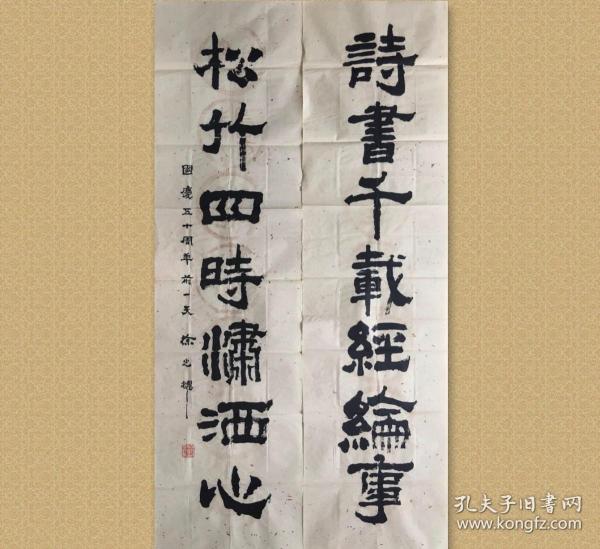 詩書千載經綸事
松竹四時瀟洒心
國慶五十周年前一天 徐之
孔夫子旧书网
www.kongfz.com